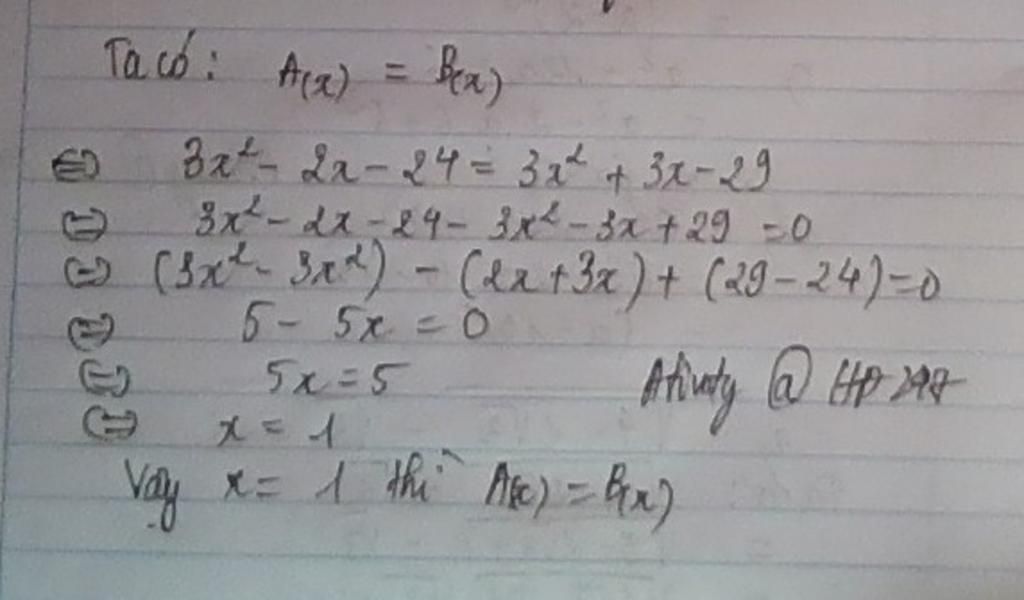 Ta có: A(x) = B(x)
⇔ 3x² - 2x - 24 = 3x² + 3x - 29
⇔ 3x² - 2x - 24 - 3x² - 3x + 29 = 0
⇔ (3x² - 3x²) - (2x + 3x) + (29 - 24) = 0
⇔ 5 - 5x = 0
⇔ 5x = 5
@
⇔ x = 1
Vậy x = 1 thì A(x) = B(x)